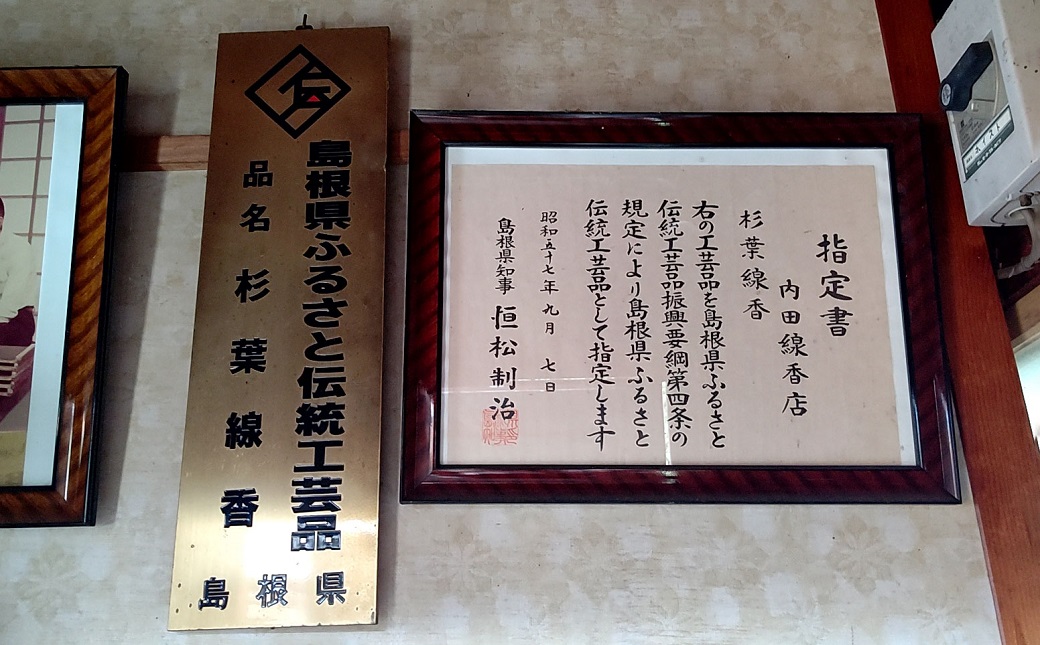 伝
島根県ふるさと伝統工芸品
品名 杉葉線香
島根県
指定書
内田線香店
杉葉線香
右の工芸品を島根県ふるさと
伝統工芸品振興要綱第四条の
規定により島根県ふるさと
伝統工芸品として指定します
昭和五十七年九月七日
島根県知事 恒松制治